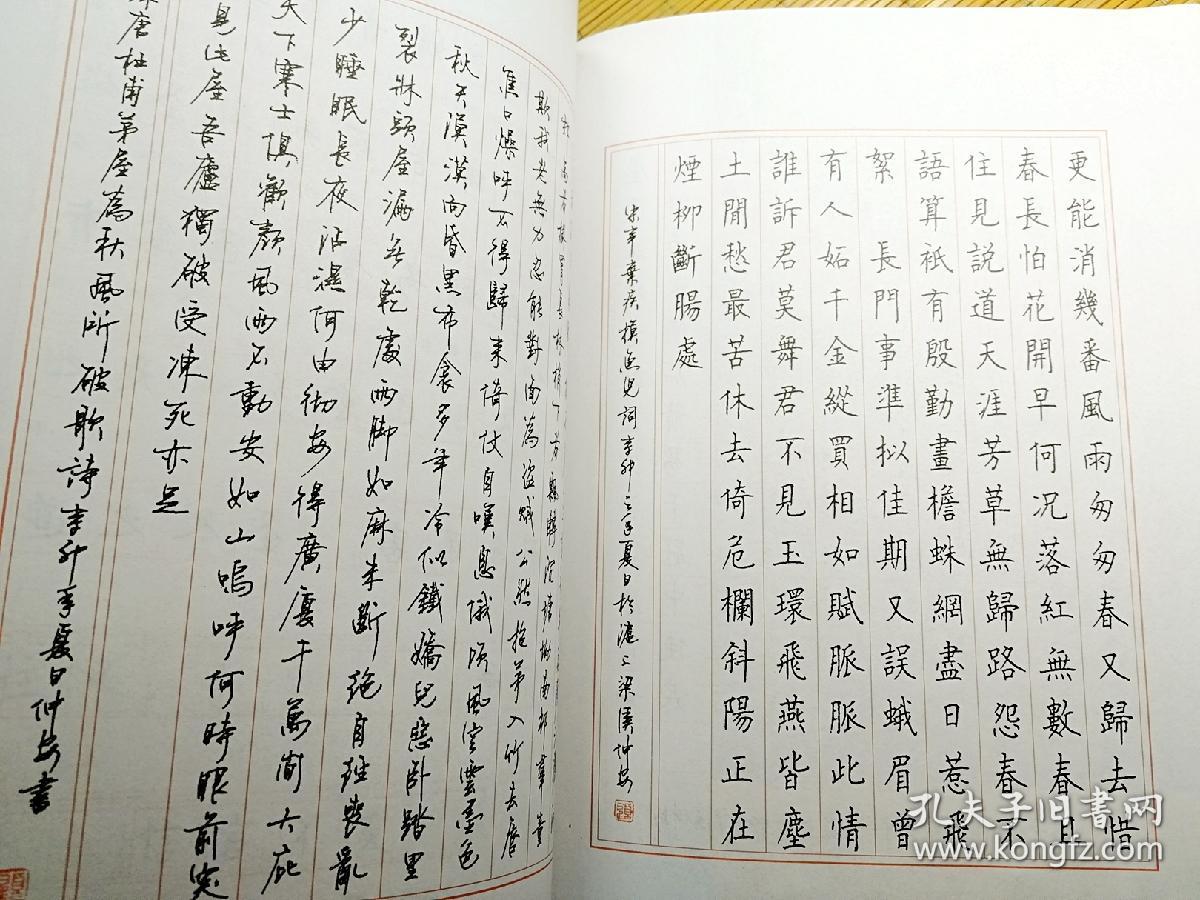 更能消幾番風雨匆匆春又歸去惜
春長怕花開早何況落紅無數春且
住見説道天涯芳草無歸路怨春不
語算祇有殷勤畫檐蛛網盡日惹飛
絮 長門事準拟佳期又誤蛾眉曾
有人妬千金縱買相如賦脈脈此情
誰訴君莫舞君不見玉環飛燕皆塵
土閒愁最苦休去倚危欄斜陽正在
煙柳斷腸處
宋辛棄疾摸魚兒詞辛卯之年夏日於滬上梁溪仲安
罥長林梢下者飄轉沉塘坳南村羣童
欺我老無力忍能對面為盜賊公然抱茅入竹去唇
焦口燥呼不得歸來倚仗自嘆息俄頃風定雲墨色
秋天漠漠向昏黑布衾多年冷似鐵嬌兒惡卧踏里
裂牀頭屋漏無乾處雨脚如麻未斷絶自經喪亂
少睡眠長夜沾濕何由徹安得廣廈千萬間大庇
天下寒士俱歡顏風雨不動安如山嗚呼何時眼前突
見此屋吾廬獨破受凍死亦足
唐杜甫茅屋為秋風所破歌詩辛卯年夏日仲安書
孔夫子旧书网
www.kongfz.com